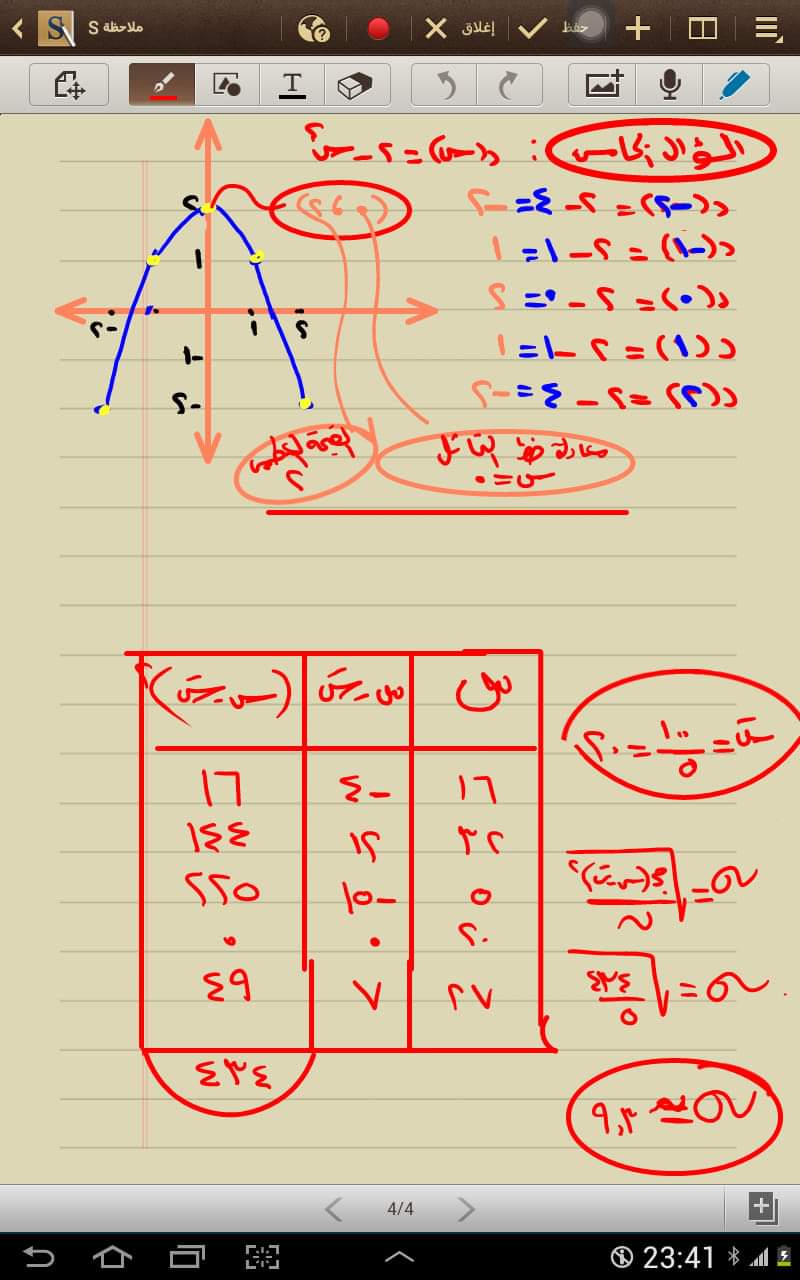 ملاحظة S
إغلاق
حفظ
السؤال الخامس : د(س) = ٢ - س٢
د(-٢) = ٢ - ٤ = -٢
د(-١) = ٢ - ١ = ١
د(٠) = ٢ - ٠ = ٢
د(١) = ٢ - ١ = ١
د(٢) = ٢ - ٤ = -٢
(٠ ، ٢)
٢
١
-٢
١
٢
-١
-٢
معادلة خط التماثل
س = ٠
القيمة العظمى
٢
س | س - س̄ | (س - س̄)٢
١٦ | -٤ | ١٦
٣٢ | ١٢ | ١٤٤
٥ | -١٥ | ٢٢٥
٢٠ | ٠ | ٠
٢٧ | ٧ | ٤٩
٤٣٤
س̄ = ١٠٠/٥ = ٢٠
σ = √(مج(س - س̄)٢/ن)
σ = √(٤٣٤/٥)
σ ≃ ٩,٣
4/4
23:41